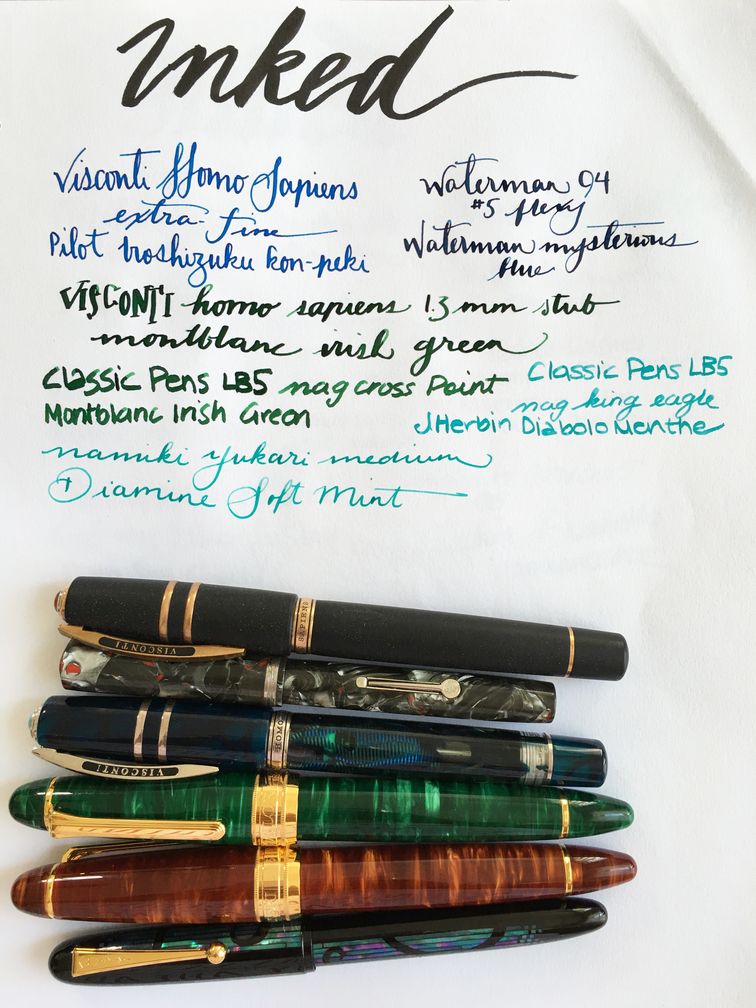 Inked
Visconti Homo Sapiens
extra-fine
Pilot Iroshizuku kon-peki
Waterman 94
#5 flexy
Waterman mysterious
blue
VISCONTI homo sapiens 1.3mm stub
montblanc irish green
Classic Pens LB5 nag cross Point
Montblanc Irish Green
Classic Pens LB5
nag king eagle
J Herbin Diabolo Menthe
namiki yukari medium
Diamine Soft Mint
SAPIENS
VISCONTI
HOMO S
VISCONTI